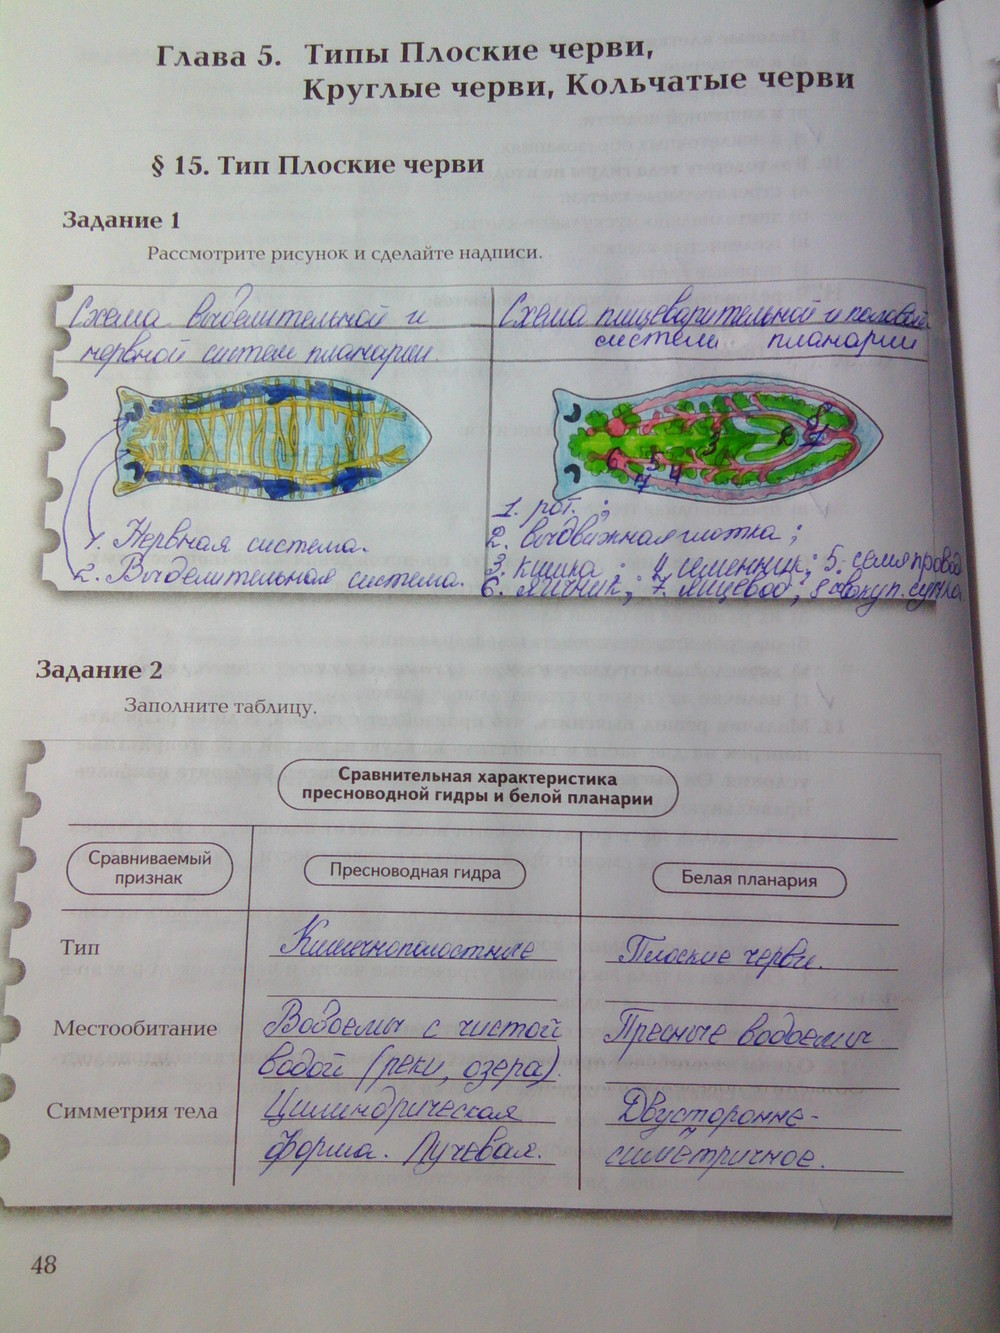 Глава 5. Типы Плоские черви,
Круглые черви, Кольчатые черви
§ 15. Тип Плоские черви
Задание 1
Рассмотрите рисунок и сделайте надписи.
Схема выделительной и
нервной систем планарии.
Схема пищеварительной и половой
систем планарии
1. Нервная система.
2. Выделительная система.
1. рот. ;
2. выдвижная глотка ;
3. кишка ; 4 семенник ; 5. семяпровод
6. яичник ; 7. яйцевод ; 8
Задание 2
Заполните таблицу.
Сравнительная характеристика
пресноводной гидры и белой планарии
Сравниваемый
признак
Пресноводная гидра
Белая планария
Тип
Кишечнополостные
Плоские черви.
Местообитание
Водоемы с чистой
водой (реки, озера).
Пресные водоемы
Симметрия тела
Цилиндрическая
форма. Лучевая.
Двусторонне-
симметричное.
48